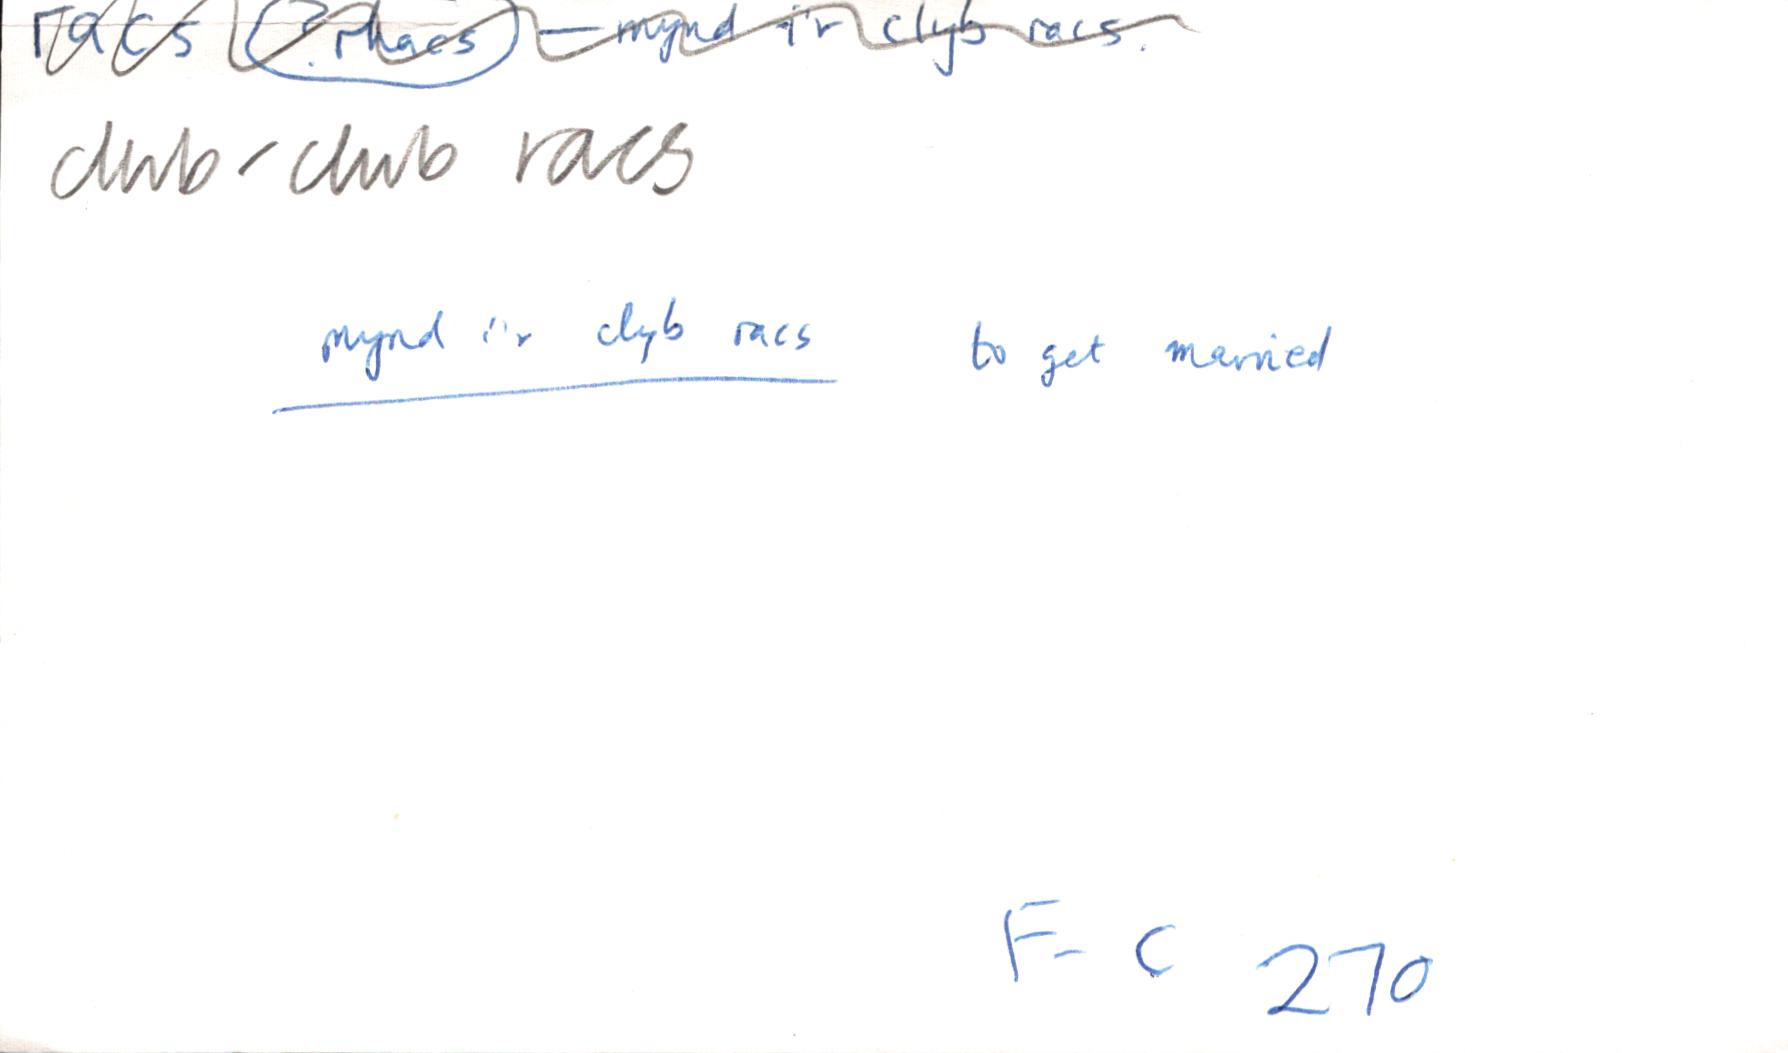 racs (? rhacs) – mynd i'r clyb racs.
clwb - clwb racs
mynd i'r clyb racs to get married
F- C 270